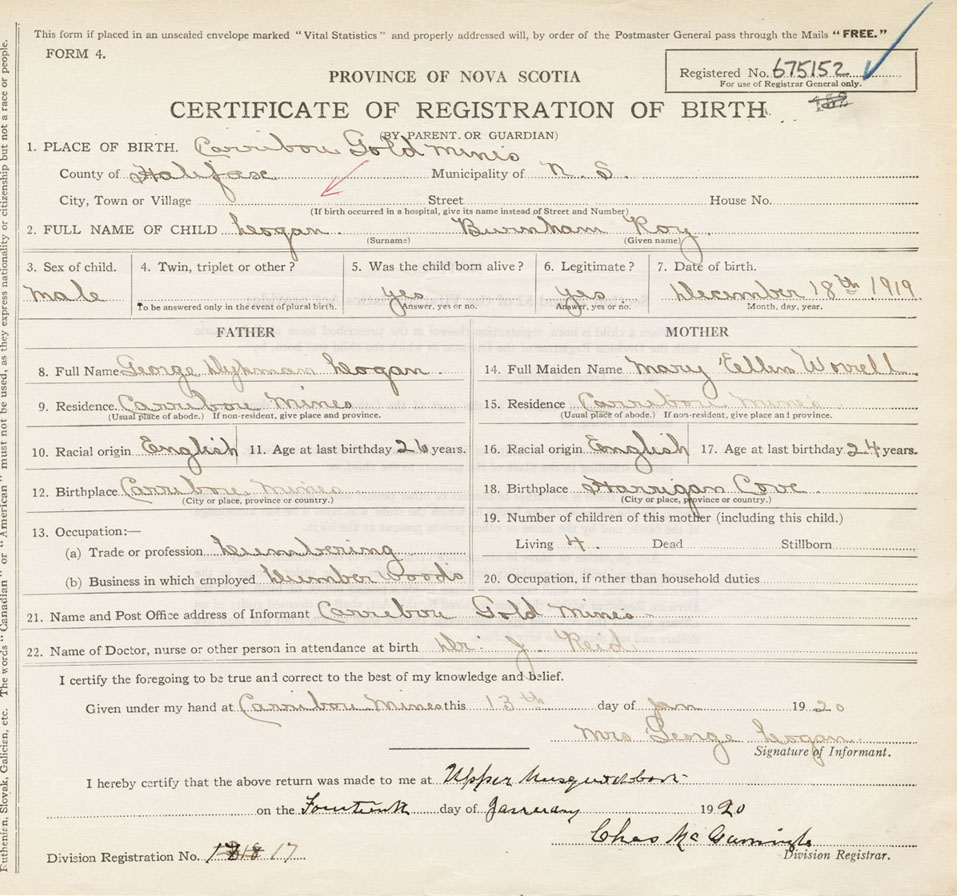 This form if placed in an unsealed envelope marked "Vital Statistics" and properly addressed will, by order of the Postmaster General pass through the Mails "FREE."
FORM 4.
Registered No. 675152
For use of Registrar General only.
PROVINCE OF NOVA SCOTIA
CERTIFICATE OF REGISTRATION OF BIRTH
(BY PARENT OR GUARDIAN)
1. PLACE OF BIRTH. Carribou Gold Mines
County of Halifax Municipality of N. S.
City, Town or Village Street House No.
(If birth occurred in a hospital, give its name instead of Street and Number)
2. FULL NAME OF CHILD Logan Burnham Roy
(Surname) (Given name)
3. Sex of child. 4. Twin, triplet or other? 5. Was the child born alive? 6. Legitimate? 7. Date of birth.
male yes yes December 18th 1919
To be answered only in the event of plural birth. Answer, yes or no. Answer, yes or no. Month, day, year.
FATHER MOTHER
8. Full Name George Dykman Logan 14. Full Maiden Name Mary Ellen Worrell
9. Residence Carribou Mines 15. Residence Carribou Mines
(Usual place of abode.) If non-resident, give place and province. (Usual place of abode.) If non-resident, give place and province.
10. Racial origin English 11. Age at last birthday 26 years. 16. Racial origin English 17. Age at last birthday 24 years.
12. Birthplace Carribou Mines 18. Birthplace Harrigan Cove
(City or place, province or country.) (City or place, province or country.)
13. Occupation:— 19. Number of children of this mother (including this child.)
(a) Trade or profession Lumbering Living 4. Dead Stillborn
(b) Business in which employed Lumber Woods 20. Occupation, if other than household duties
21. Name and Post Office address of Informant Carribou Gold Mines
22. Name of Doctor, nurse or other person in attendance at birth Dr. J. Reid
I certify the foregoing to be true and correct to the best of my knowledge and belief.
Given under my hand at Carribou Mines this 13th day of Jan 1920
Mrs George Logan
Signature of Informant.
I hereby certify that the above return was made to me at Upper Musquodoboit
on the Fourteenth day of January 1920
Chas Mc
Division Registrar.
Division Registration No. 17
Ruthenian, Slovak, Galician, etc. The words "Canadian" or "American" must not be used, as they express nationality or citizenship but not a race or people.